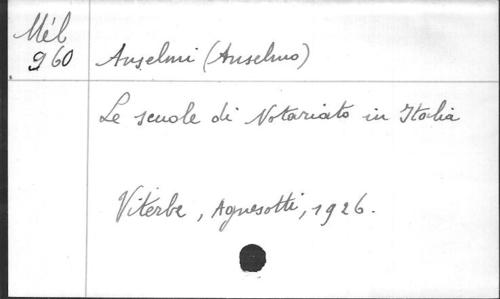 Mél
960
Anselmi (Anselmo)
Le scuole di Notariato in Italia
Viterbe, Agnesotti, 1926.